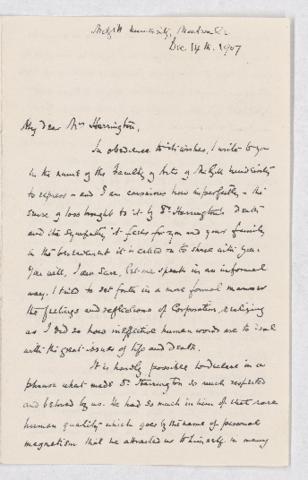 McGill University, Montreal
Dec 14th. 1907
My dear Mrs Harrington,
In obedience to its wishes, I write to you
in the name of the Faculty of Arts of McGill University
to express – and I am conscious how imperfectly – the
sense of loss brought to it by Dr. Harrington's death
and the sympathy it feels for you and your family
in the bereavement it is called on to share with you.
You will, I am sure, let me speak in an informal
way. I tried to set forth in a more formal manner
the feelings and reflections of Corporation, realizing
as I did so how ineffective human words are to deal
with the great issues of Life and Death.
It is hardly possible to declare in a
phrase what made Dr. Harrington so much respected
and beloved by us. He had so much in him of that rare
human quality which goes by the name of personal
magnetism that he attracted us to himself in many